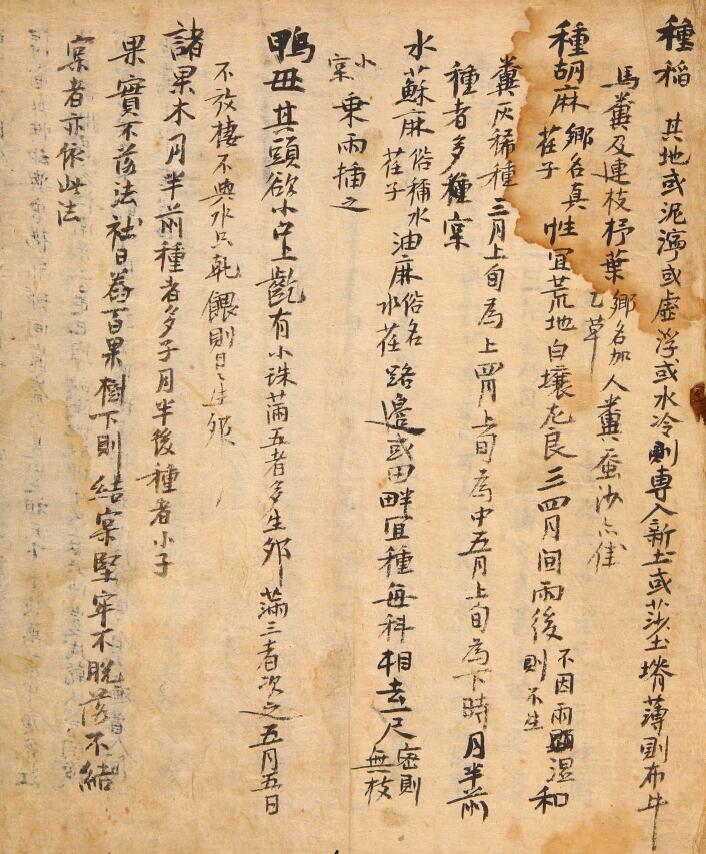 種稻 其地或泥濘或虛浮或水冷則專入新土或莎土塉薄則布牛
馬糞及連枝杼葉鄕名加乙草人糞蚕沙亦佳
種胡麻鄕名真荏子性宜荒地白壤尤良三四月間雨後不因雨顯濕則不生和
糞灰稀種三月上旬爲上四月上旬爲中五月上旬爲下時月半前
種者多種宲
水蘇麻俗稱水荏子油麻俗名水荏路邊或田畔宜種每科相去一尺密則無枝
小宲乗雨插之
鴨丑其頭欲小口上齕有小珠蒲五者多生夘蒲三者次之五月五日
不放棲不與水只乹餵則日〻生夘
諸果木月半前種者多子月半後種者小子
果實不落法社日舂百果樹下則結宲堅牢不脫落不結
宲者亦依此法